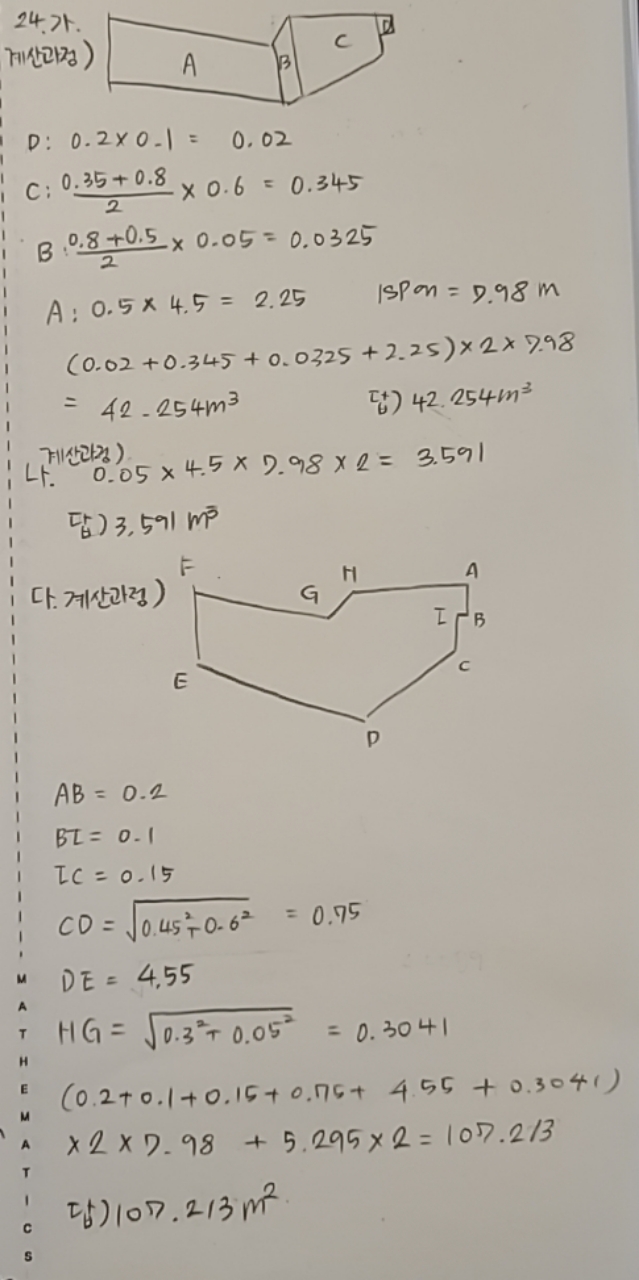 24. 가.
계산과정)
A
B
C
D
D: 0.2 × 0.1 = 0.02
C: (0.35 + 0.8)/2 × 0.6 = 0.345
B: (0.8 + 0.5)/2 × 0.05 = 0.0325
A: 0.5 × 4.5 = 2.25 1span = 7.98 m
(0.02 + 0.345 + 0.0325 + 2.25) × 2 × 7.98
= 42.254m³ 답) 42.254m³
나. 계산과정) 0.05 × 4.5 × 7.98 × 2 = 3.591
답) 3.591 m³
다. 계산과정)
F
H
A
G
I
B
C
E
D
AB = 0.2
BI = 0.1
IC = 0.15
CD = √(0.45² + 0.6²) = 0.75
DE = 4.55
HG = √(0.3² + 0.05²) = 0.3041
(0.2 + 0.1 + 0.15 + 0.75 + 4.55 + 0.3041)
× 2 × 7.98 + 5.295 × 2 = 107.213
답) 107.213 m²
MATHEMATICS